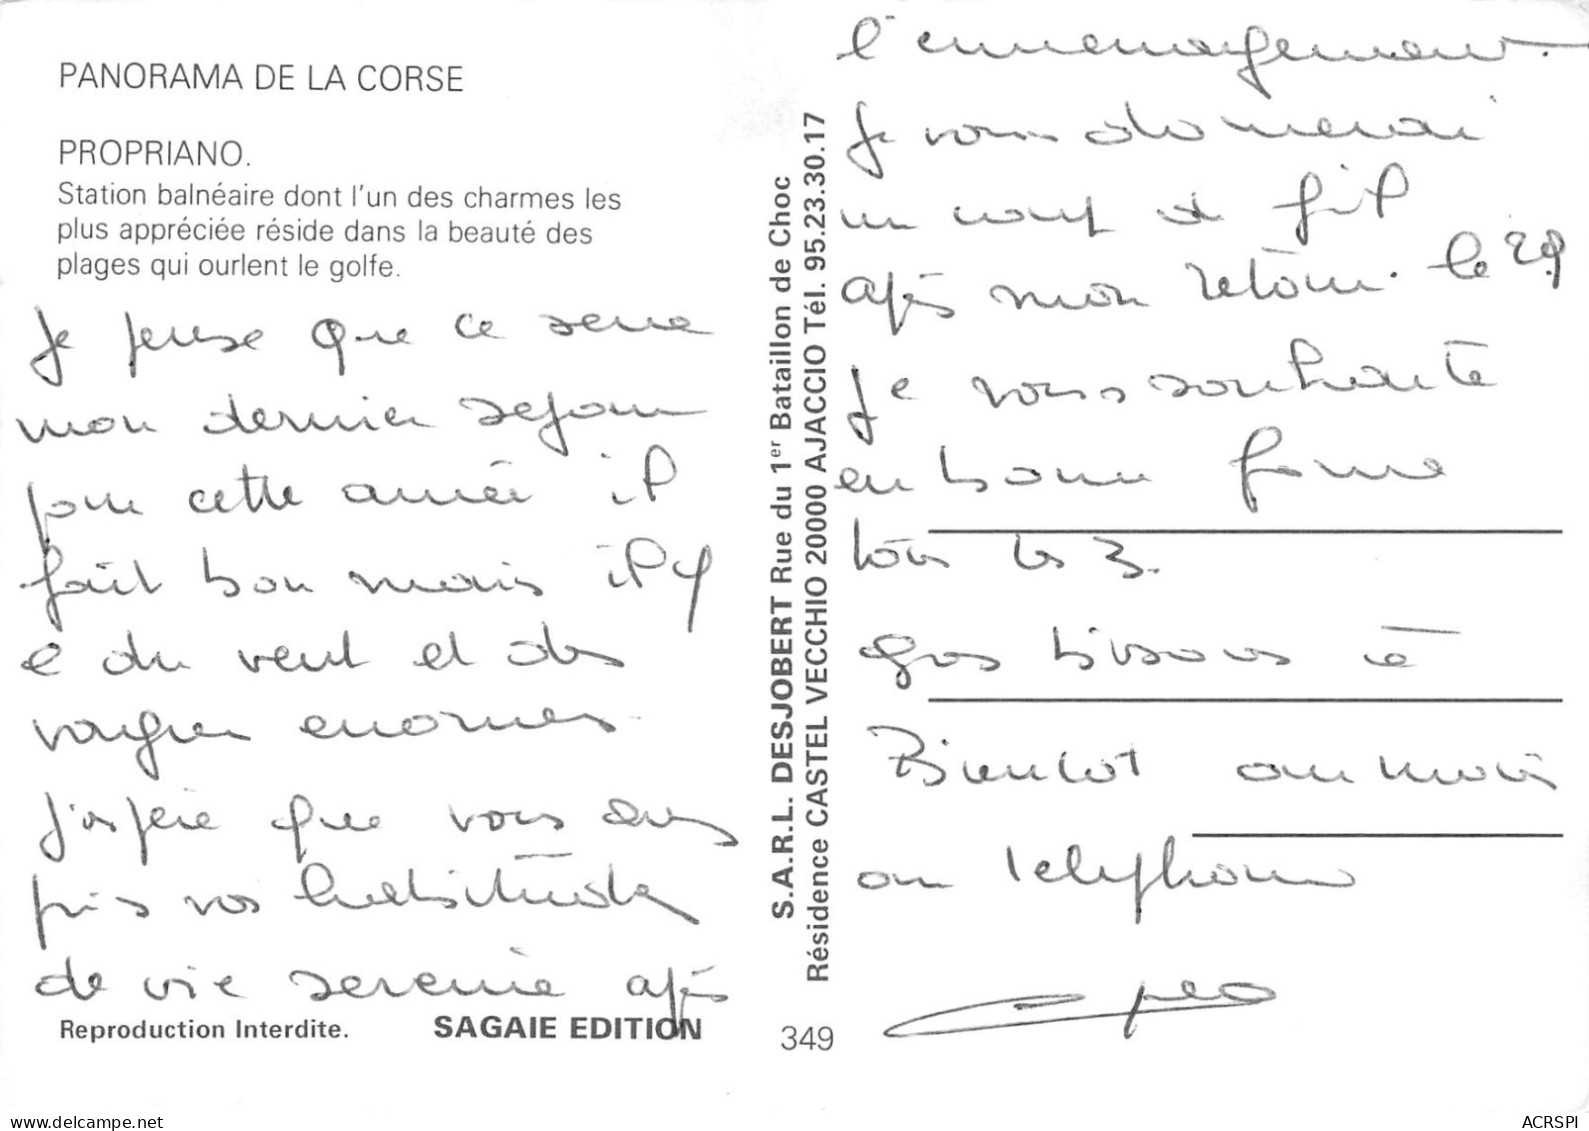 PANORAMA DE LA CORSE
PROPRIANO.
Station balnéaire dont l'un des charmes les
plus appréciée réside dans la beauté des
plages qui ourlent le golfe.
Je pense que ce sera
mon dernier sejour
pour cette année il
fait bon mais il y
a du vent et des
vagues enormes.
J'espère que vous avez
pris vos habitudes
de vie sereine après
Reproduction Interdite.
SAGAIE EDITION
S.A.R.L. DESJOBERT Rue du 1er Bataillon de Choc
Résidence CASTEL VECCHIO 20000 AJACCIO Tél. 95.23.30.17
349
l'emmenagement.
Je vous donnerai
un coup de fil
après mon retour. le 29
Je vous souhaite
en bonne forme
tous les 3.
gros bisous à
Bientot au moins
au telephone
ACRSPI